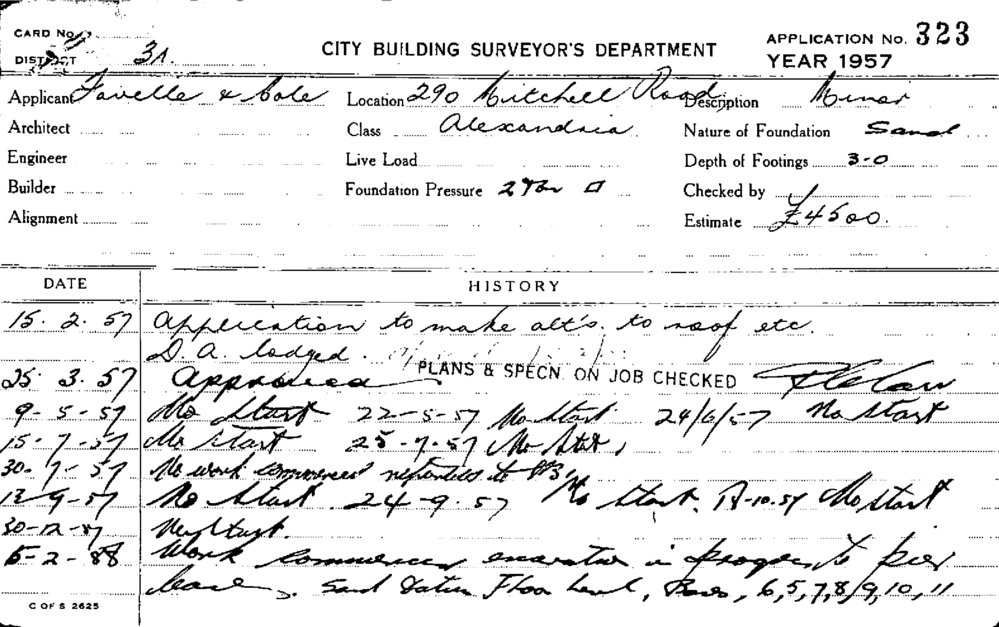 CARD No.
DISTRICT 3A.
CITY BUILDING SURVEYOR'S DEPARTMENT
APPLICATION No. 323
YEAR 1957
Applicant Favelle & Cole Location 290 Mitchell Road Description Minor
Architect Class Alexandria. Nature of Foundation Sand
Engineer Live Load Depth of Footings 3-0
Builder Foundation Pressure 2 Ton □ Checked by
Alignment Estimate £4500.
DATE HISTORY
15. 2. 57 Application to make alt's. to roof etc.
D.A. lodged.
25. 3. 57 Approved PLANS & SPECN. ON JOB CHECKED
9-5-57 No Start 22-5-57 No Start 24/6/57 No Start
15-7-57 No Start 25-7-57 No Start
30-7-57 No work commenced
13-9-57 No Start 24-9-57 No Start. -10-57 No Start
30-12-57 No Start.
5-2-58 Work commenced excavation in progress to pier
Sand Floor Level, Bases, 6,5,7,8/9,10,11
C OF S 2625